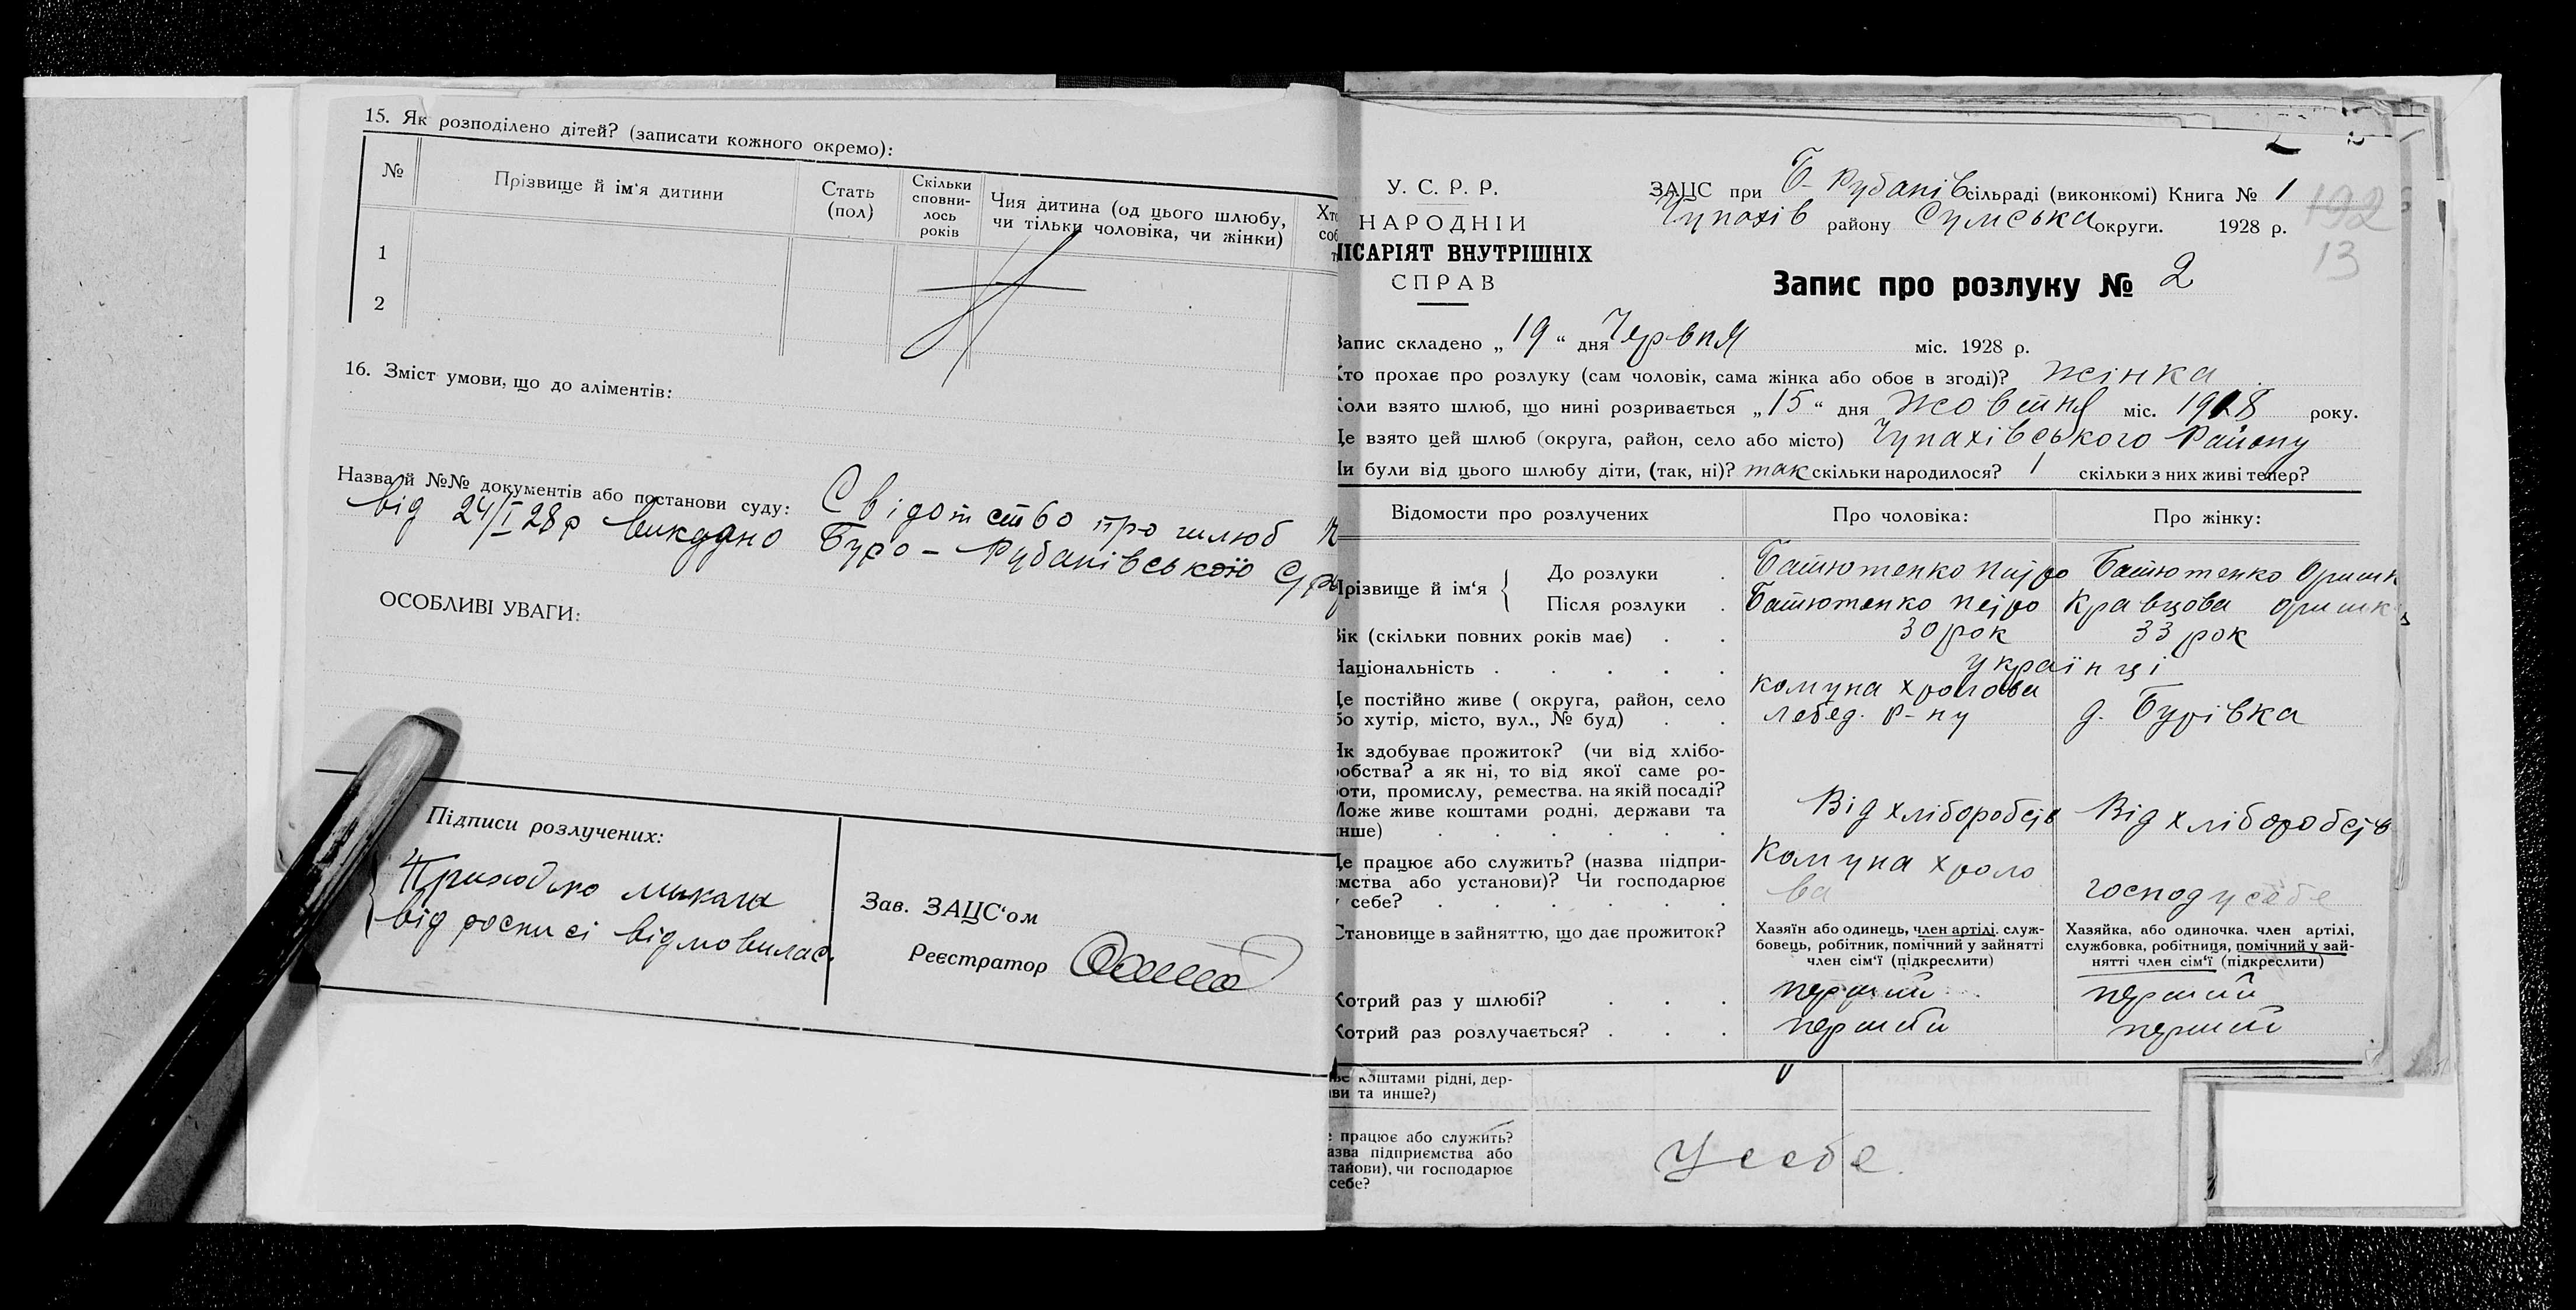 15. Як розподілено дітей? (записати кожного окремо):
№
Прізвище й ім'я дитини
Стать
(пол)
Скільки
сповни-
лось
років
Чия дитина (од цього шлюбу,
чи тільки чоловіка, чи жінки)
1
2
16. Зміст умови, що до аліментів:
Назва й №№ документів або постанови суду: Свідотство про шлюб
від 24/I 28 р видано Буро-Рубанівською
ОСОБЛИВІ УВАГИ:
Підписи розлучених:
від росписі відмовилас.
Зав. ЗАЦС'ом
Реєстратор
У. С. Р. Р.
НАРОДНІЙ
ІСАРІЯТ ВНУТРІШНІХ
СПРАВ
ЗАЦС при Б-Рубанів сільраді (виконкомі) Книга № 1
Чупахів району Сумська округи. 1928 р.
192
13
Запис про розлуку № 2
Запис складено „19“ дня Червня міс. 1928 р.
Хто прохає про розлуку (сам чоловік, сама жінка або обоє в згоді)? жінка
Коли взято шлюб, що нині розривається „15“ дня жовтня міс. 1918 року.
Де взято цей шлюб (округа, район, село або місто) Чупахівського Району
Чи були від цього шлюбу діти, (так, ні)? так скільки народилося? 1 скільки з них живі тепер?
Відомости про розлучених
Про чоловіка:
Про жінку:
Прізвище й ім'я { До розлуки . Батютенко Петро Батютенко Оришк
Після розлуки . Батютенко Петро Кравцова Оришк
Вік (скільки повних років має) . . 30 рок 33 рок
Національність . . . . . українці
Де постійно живе ( округа, район, село
бо хутір, місто, вул., № буд) . .
комуна Хролова
лебед. р-ну
д. Бурівка
Як здобуває прожиток? (чи від хлібо-
робства? а як ні, то від якої саме ро-
боти, промислу, ремества. на якій посаді?
Може живе коштами родні, держави та
инше) . . . . . .
Від хліборобств
Від хліборобств
Де працює або служить? (назва підпри-
ємства або установи)? Чи господарює
у себе? . . . . . .
Комуна Хроло
ва
господ у себе
Становище в зайняттю, що дає прожиток?
Хазяїн або одинець, член артілі. служ-
бовець, робітник, помічний у зайнятті
член сім'ї (підкреслити)
Хазяйка, або одиночка. член артілі,
службовка, робітниця, помічний у зай-
нятті член сім'ї (підкреслити)
Котрий раз у шлюбі? . . . перший перший
Котрий раз розлучається? . . . перший перший
коштами рідні, дер-
ви та инше?)
працює або служить?
азва підприємства або
танови), чи господарює
себе?
У себе.